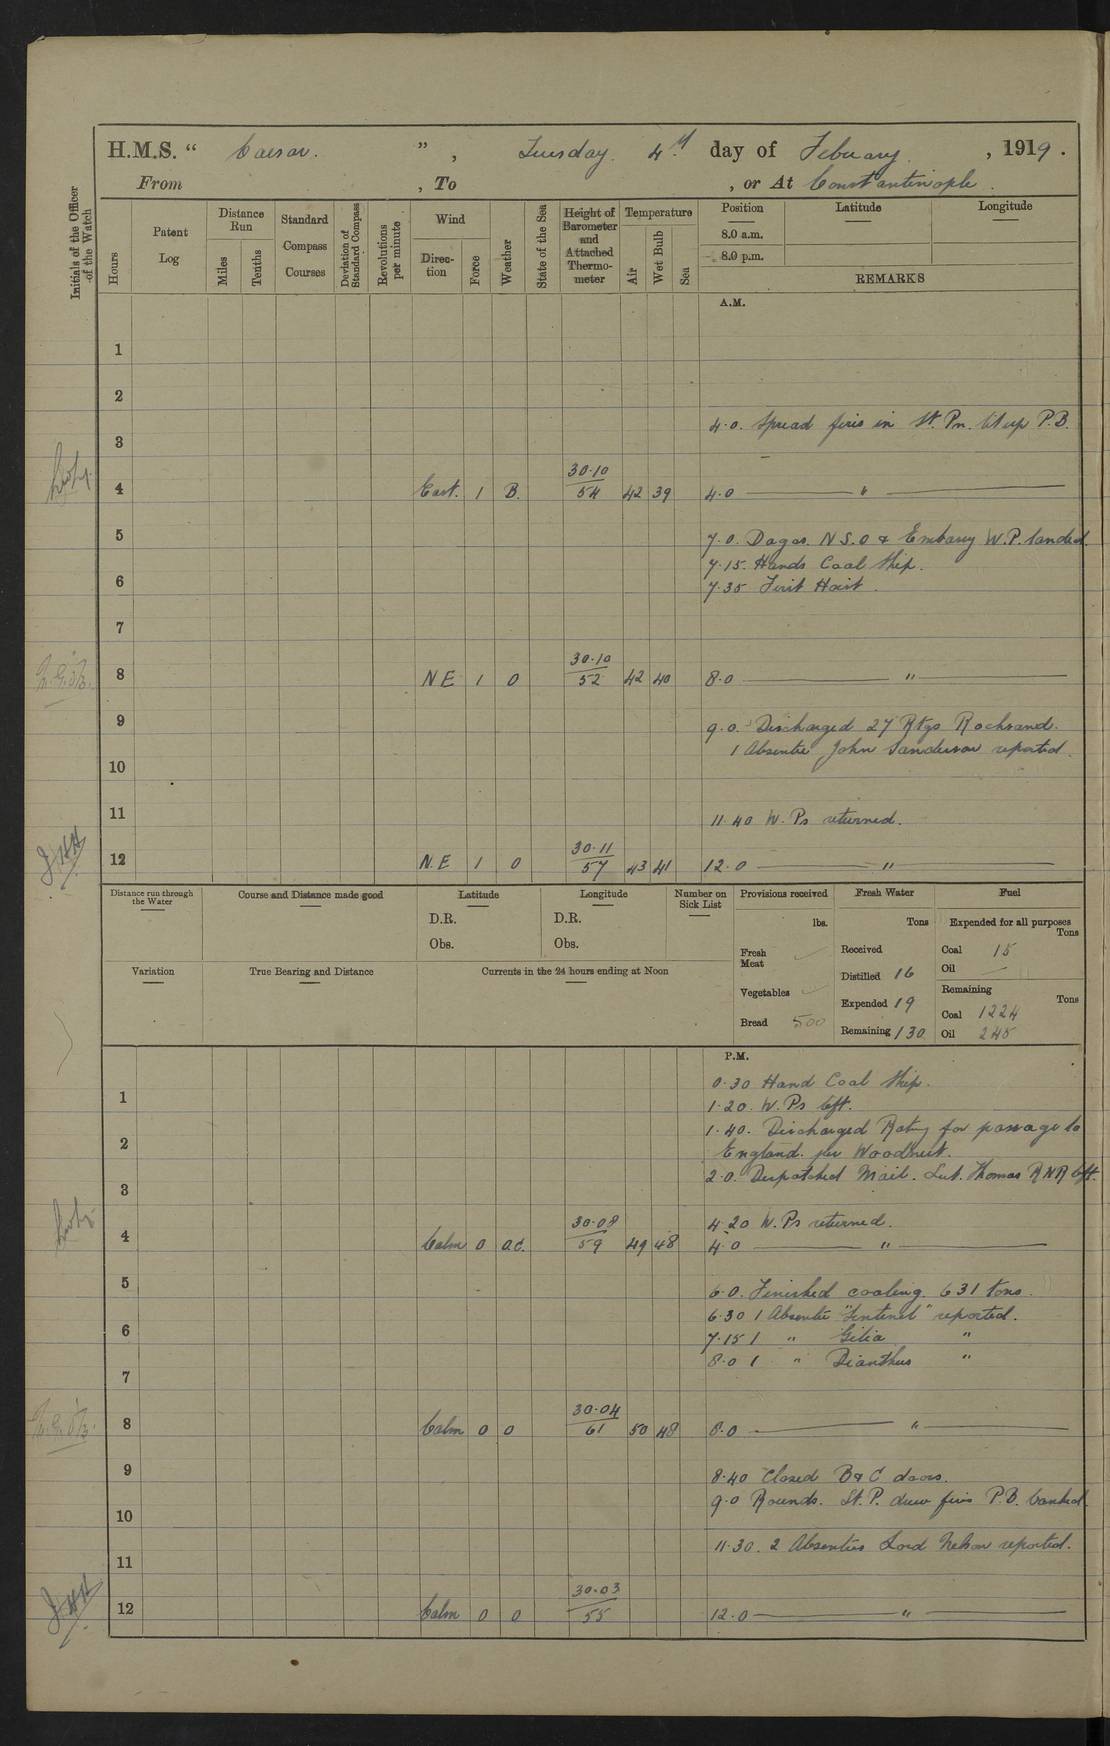 H.M.S. " Caesar. ", Tuesday 4th day of Febuary, 1919.
From , To , or At Constantinople.
Initials of the Officer of the Watch
Hours
Patent Log
Distance Run
Miles
Tenths
Standard Compass Courses
Deviation of Standard Compass
Revolutions per minute
Wind
Direction
Force
Weather
State of the Sea
Height of Barometer and Attached Thermometer
Temperature
Air
Wet Bulb
Sea
Position
Latitude
Longitude
8.0 a.m.
8.0 p.m.
REMARKS
A.M.
1
2
4.0. Spread fires in St. Pn. lit up P.B.
3
4 East. 1 B. 30.10 54 42 39 4.0 "
5
7.0. Dagos. N.S.O & Embassy W.P. landed.
7.15. Hands Coal Ship.
6
7.35 First Hoist.
7
8 NE 1 O 30.10 52 42 40 8.0 "
9
9.0. Discharged 27 Rtgs Rochsand.
1 Absentee John Sanderson reported.
10
11
11.40 W.Ps returned.
12 N.E 1 O 30.11 57 43 41 12.0 "
Distance run through the Water
Course and Distance made good
Latitude
D.R.
Obs.
Longitude
D.R.
Obs.
Number on Sick List
Provisions received
lbs.
Fresh Meat
Vegetables
Bread 500
Fresh Water
Tons
Received
Distilled 16
Expended 19
Remaining 130
Fuel
Expended for all purposes
Tons
Coal 15
Oil —
Remaining
Tons
Coal 1224
Oil 245
Variation
True Bearing and Distance
Currents in the 24 hours ending at Noon
P.M.
0.30 Hand Coal Ship.
1
1.20. W.Ps left.
1.40. Discharged Rating for passage to
2
England. per Woodnut.
2.0. Despatched Mail. Lut. Thomas RNR left.
3
4.20 W.Ps returned.
4 Calm 0 O.C. 30.08 59 49 48 4.0 "
5
6.0. Finished coaling. 631 tons.
6.30 1 Absentee "Sentinel" reported.
6
7.15 1 " Gilia "
8.0 1 " Dianthus "
7
8 Calm 0 O 30.04 61 50 48 8.0 "
9
8.40 Closed B & C doors.
9.0 Rounds. St.P. drew fires P.B. banked.
10
11.30. 2 Absentees Lord Nelson reported.
11
12 Calm 0 O 30.03 55 12.0 "